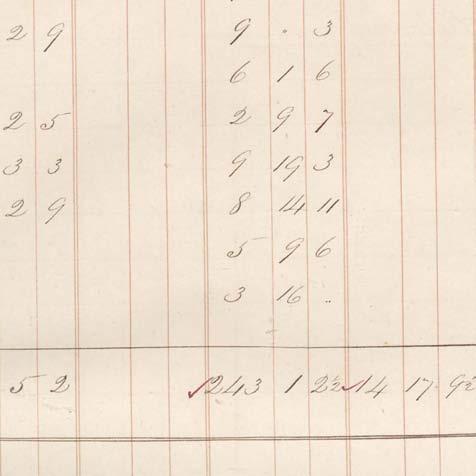 2 9 9 . 3
6 1 6
2 5 2 9 7
3 3 9 19 3
2 9 8 14 11
5 9 6
3 16 ..
5 2 ✓243 1 2½ ✓14 17 9½